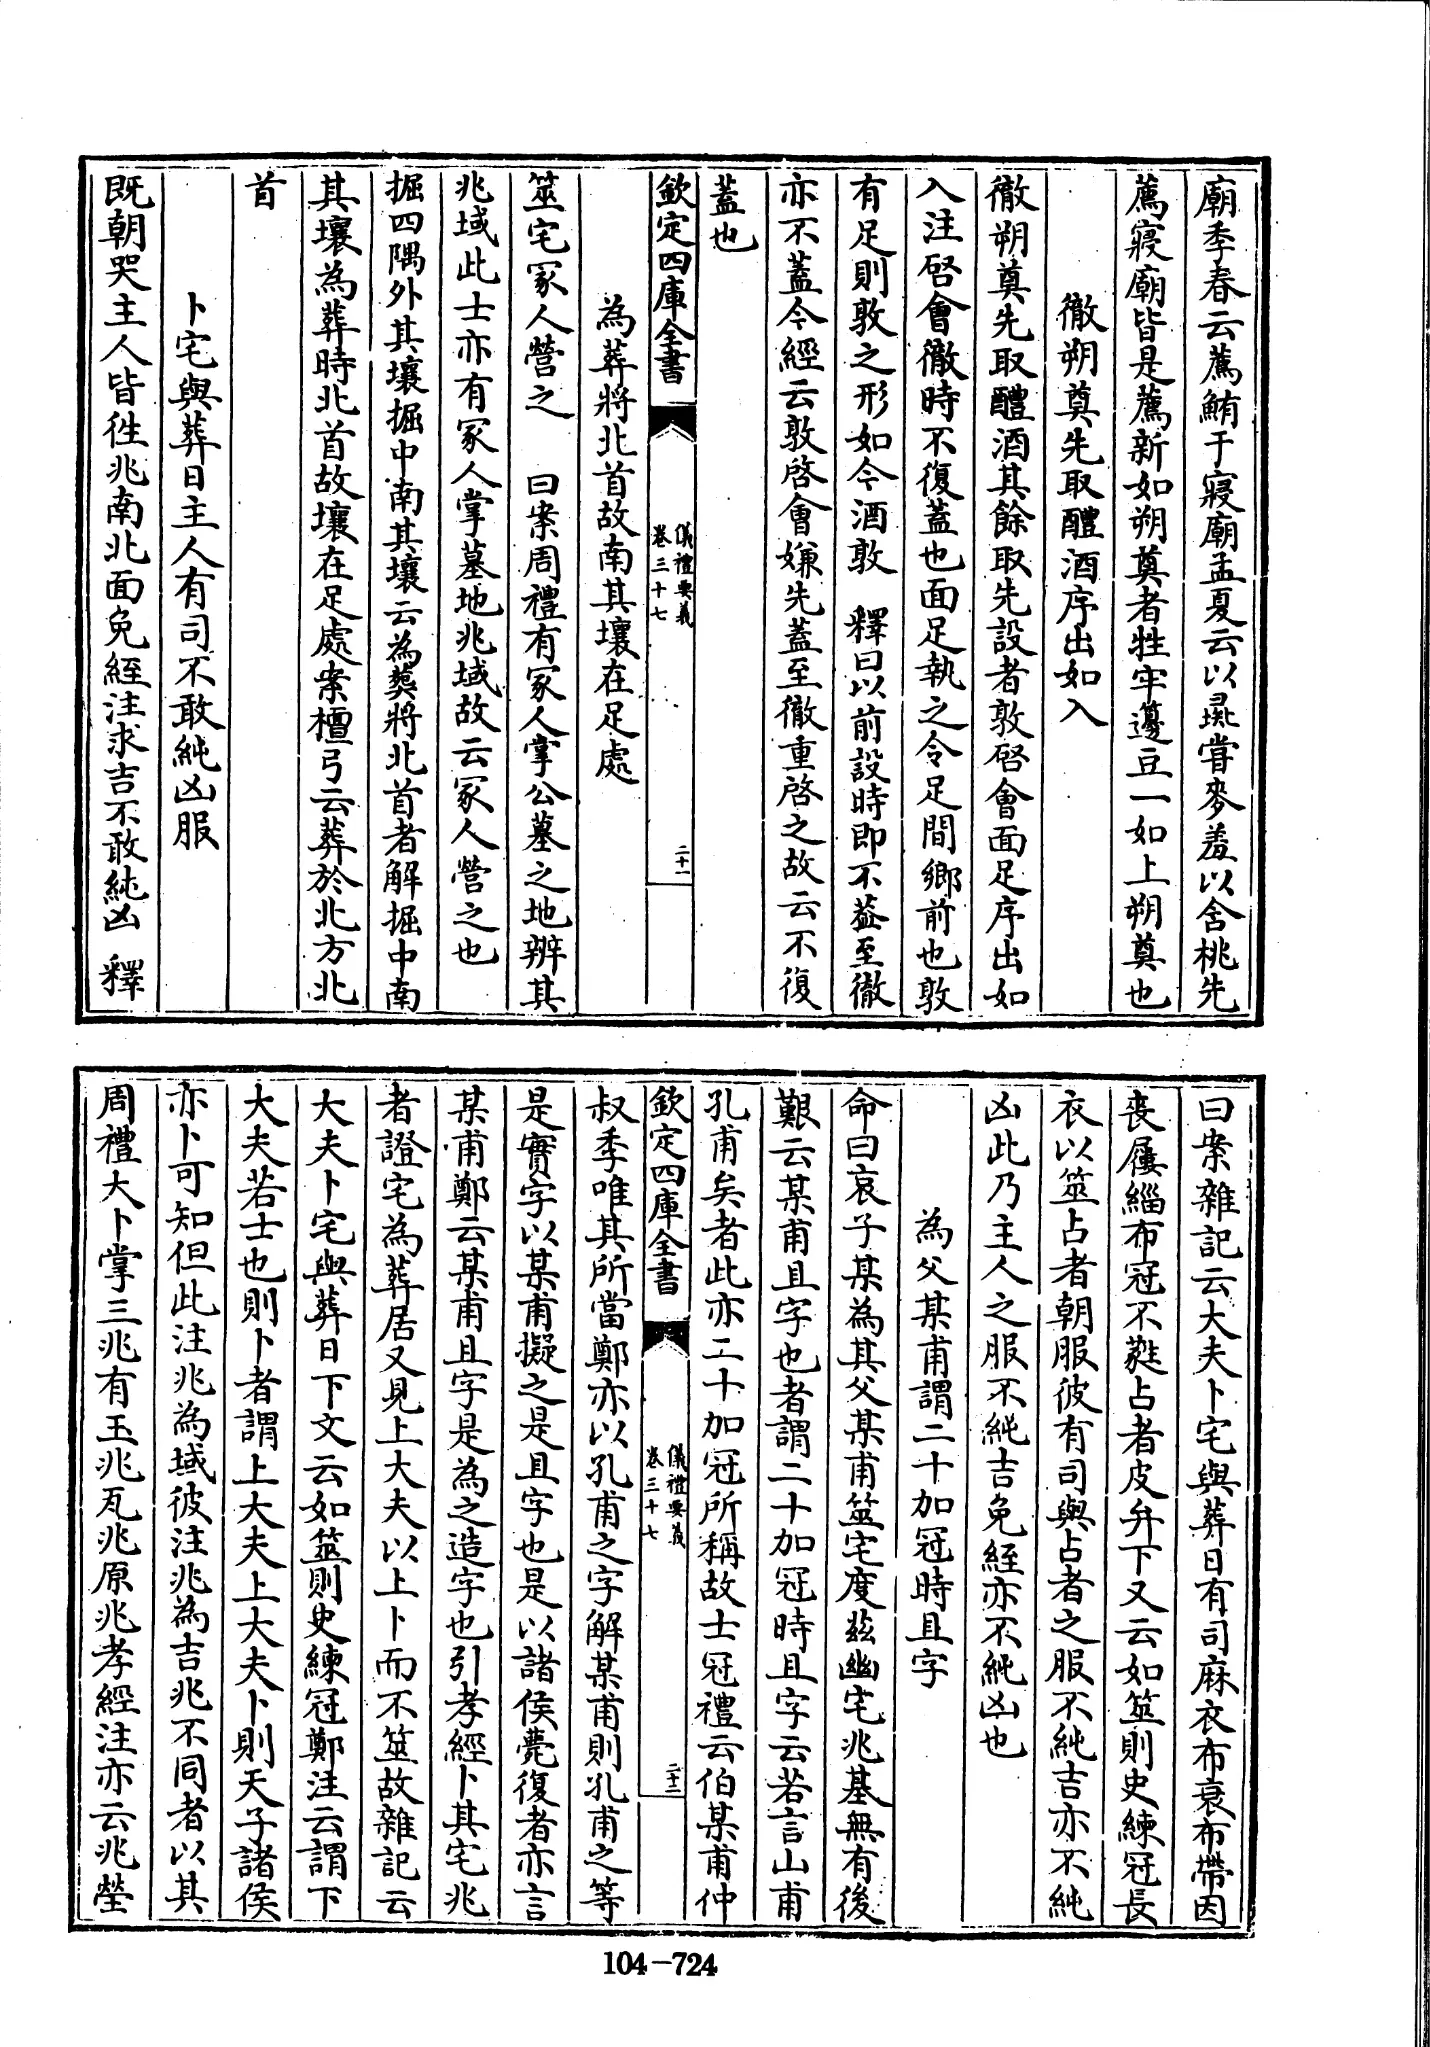 廟季春云薦鮪于寢廟孟夏云以彘嘗麥羞以含桃先
薦寢廟皆是薦新如朔奠者牲牢籩豆一如上朔奠也
徹朔奠先取醴酒序出如入
徹朔奠先取醴酒其餘取先設者敦啓會面足序出如
入注啓會徹時不復蓋也面足執之令足間鄉前也敦
有足則敦之形如今酒敦　釋曰以前設時即不蓋至徹
亦不蓋今經云敦啓會嫌先蓋至徹重啓之故云不復
蓋也
欽定四庫全書
儀禮要義
卷三十七
二十一
為葬將北首故南其壤在足處
筮宅冢人營之　曰案周禮有冢人掌公墓之地辨其
兆域此士亦有冢人掌墓地兆域故云冢人營之也
掘四隅外其壤掘中南其壤云為葬將北首者解掘中南
其壤為葬時北首故壤在足處案檀弓云葬於北方北
首
卜宅與葬日主人有司不敢純凶服
既朝哭主人皆徃兆南北面免絰注求吉不敢純凶　釋
曰案雜記云大夫卜宅與葬日有司麻衣布衰布帶因
喪屨緇布冠不蕤占者皮弁下又云如筮則史練冠長
衣以筮占者朝服彼有司與占者之服不純吉亦不純
凶此乃主人之服不純吉免絰亦不純凶也
為父某甫謂二十加冠時且字
命曰哀子某為其父某甫筮宅度茲幽宅兆基無有後
艱云某甫且字也者謂二十加冠時且字云若言山甫
孔甫矣者此亦二十加冠所稱故士冠禮云伯某甫仲
欽定四庫全書
儀禮要義
卷三十七
二十二
叔季唯其所當鄭亦以孔甫之字解某甫則孔甫之等
是實字以某甫擬之是且字也是以諸侯薨復者亦言
某甫鄭云某甫且字是為之造字也引孝經卜其宅兆
者證宅為葬居又見上大夫以上卜而不筮故雜記云
大夫卜宅與葬日下文云如筮則史練冠鄭注云謂下
大夫若士也則卜者謂上大夫上大夫卜則天子諸侯
亦卜可知但此注兆為域彼注兆為吉兆不同者以其
周禮大卜掌三兆有玉兆瓦兆原兆孝經注亦云兆塋
104-724